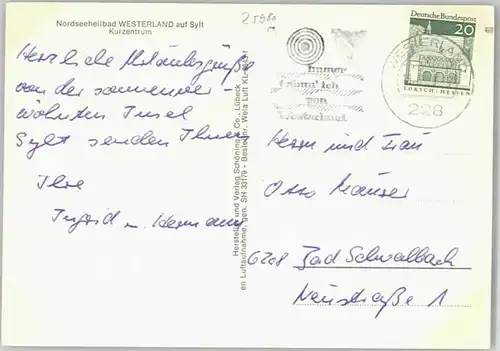 Nordseeheilbad WESTERLAND auf Sylt
Kurzentrum
Herzliche Urlaubsgrüße
von der sonnenver-
wöhnten Insel
Sylt senden Ihnen
Ihre
Ingrid u. Hermann
Hersteller und Verlag Schöning & Co., Lübeck
en Luftaufnahme, gen. SH 33179 - Bestellnr. Wela Luft KL
Immer
träum' ich
von
Westerland
WESTERLAND
228
Deutsche Bundespost
20
LORSCH · HESSEN
Herrn und Frau
Otto Mauser
6208 Bad Schwalbach
Neustraße 1